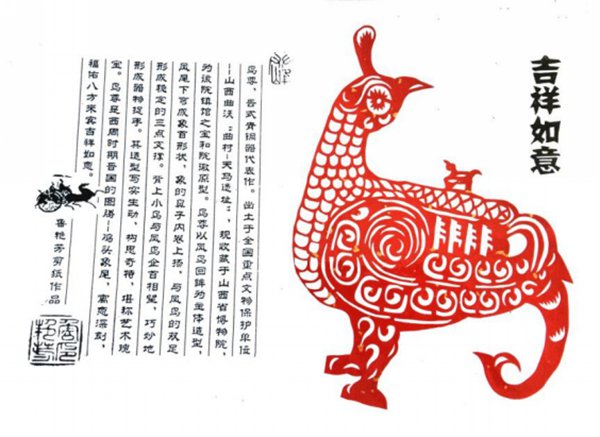 吉祥如意
鸟尊，晋式青铜器代表作。出土于全国重点文物保护单位
——山西曲沃“曲村-天马遗址”，现收藏于山西省博物院，
为该院镇馆之宝和院徽原型。鸟尊以凤鸟回眸为主体造型，
凤尾下弯成象首形状，象的鼻子内卷上扬，与凤鸟的双足
形成稳定的三点支撑。背上小鸟与凤鸟企首相望，巧妙地
形成器物捉手。其造型写实生动，构思奇特，堪称艺术瑰
宝。鸟尊是西周时期晋国的图腾——鸡头象足，寓意深刻，
福佑八方来宾吉祥如意。
鲁艳芳剪纸作品